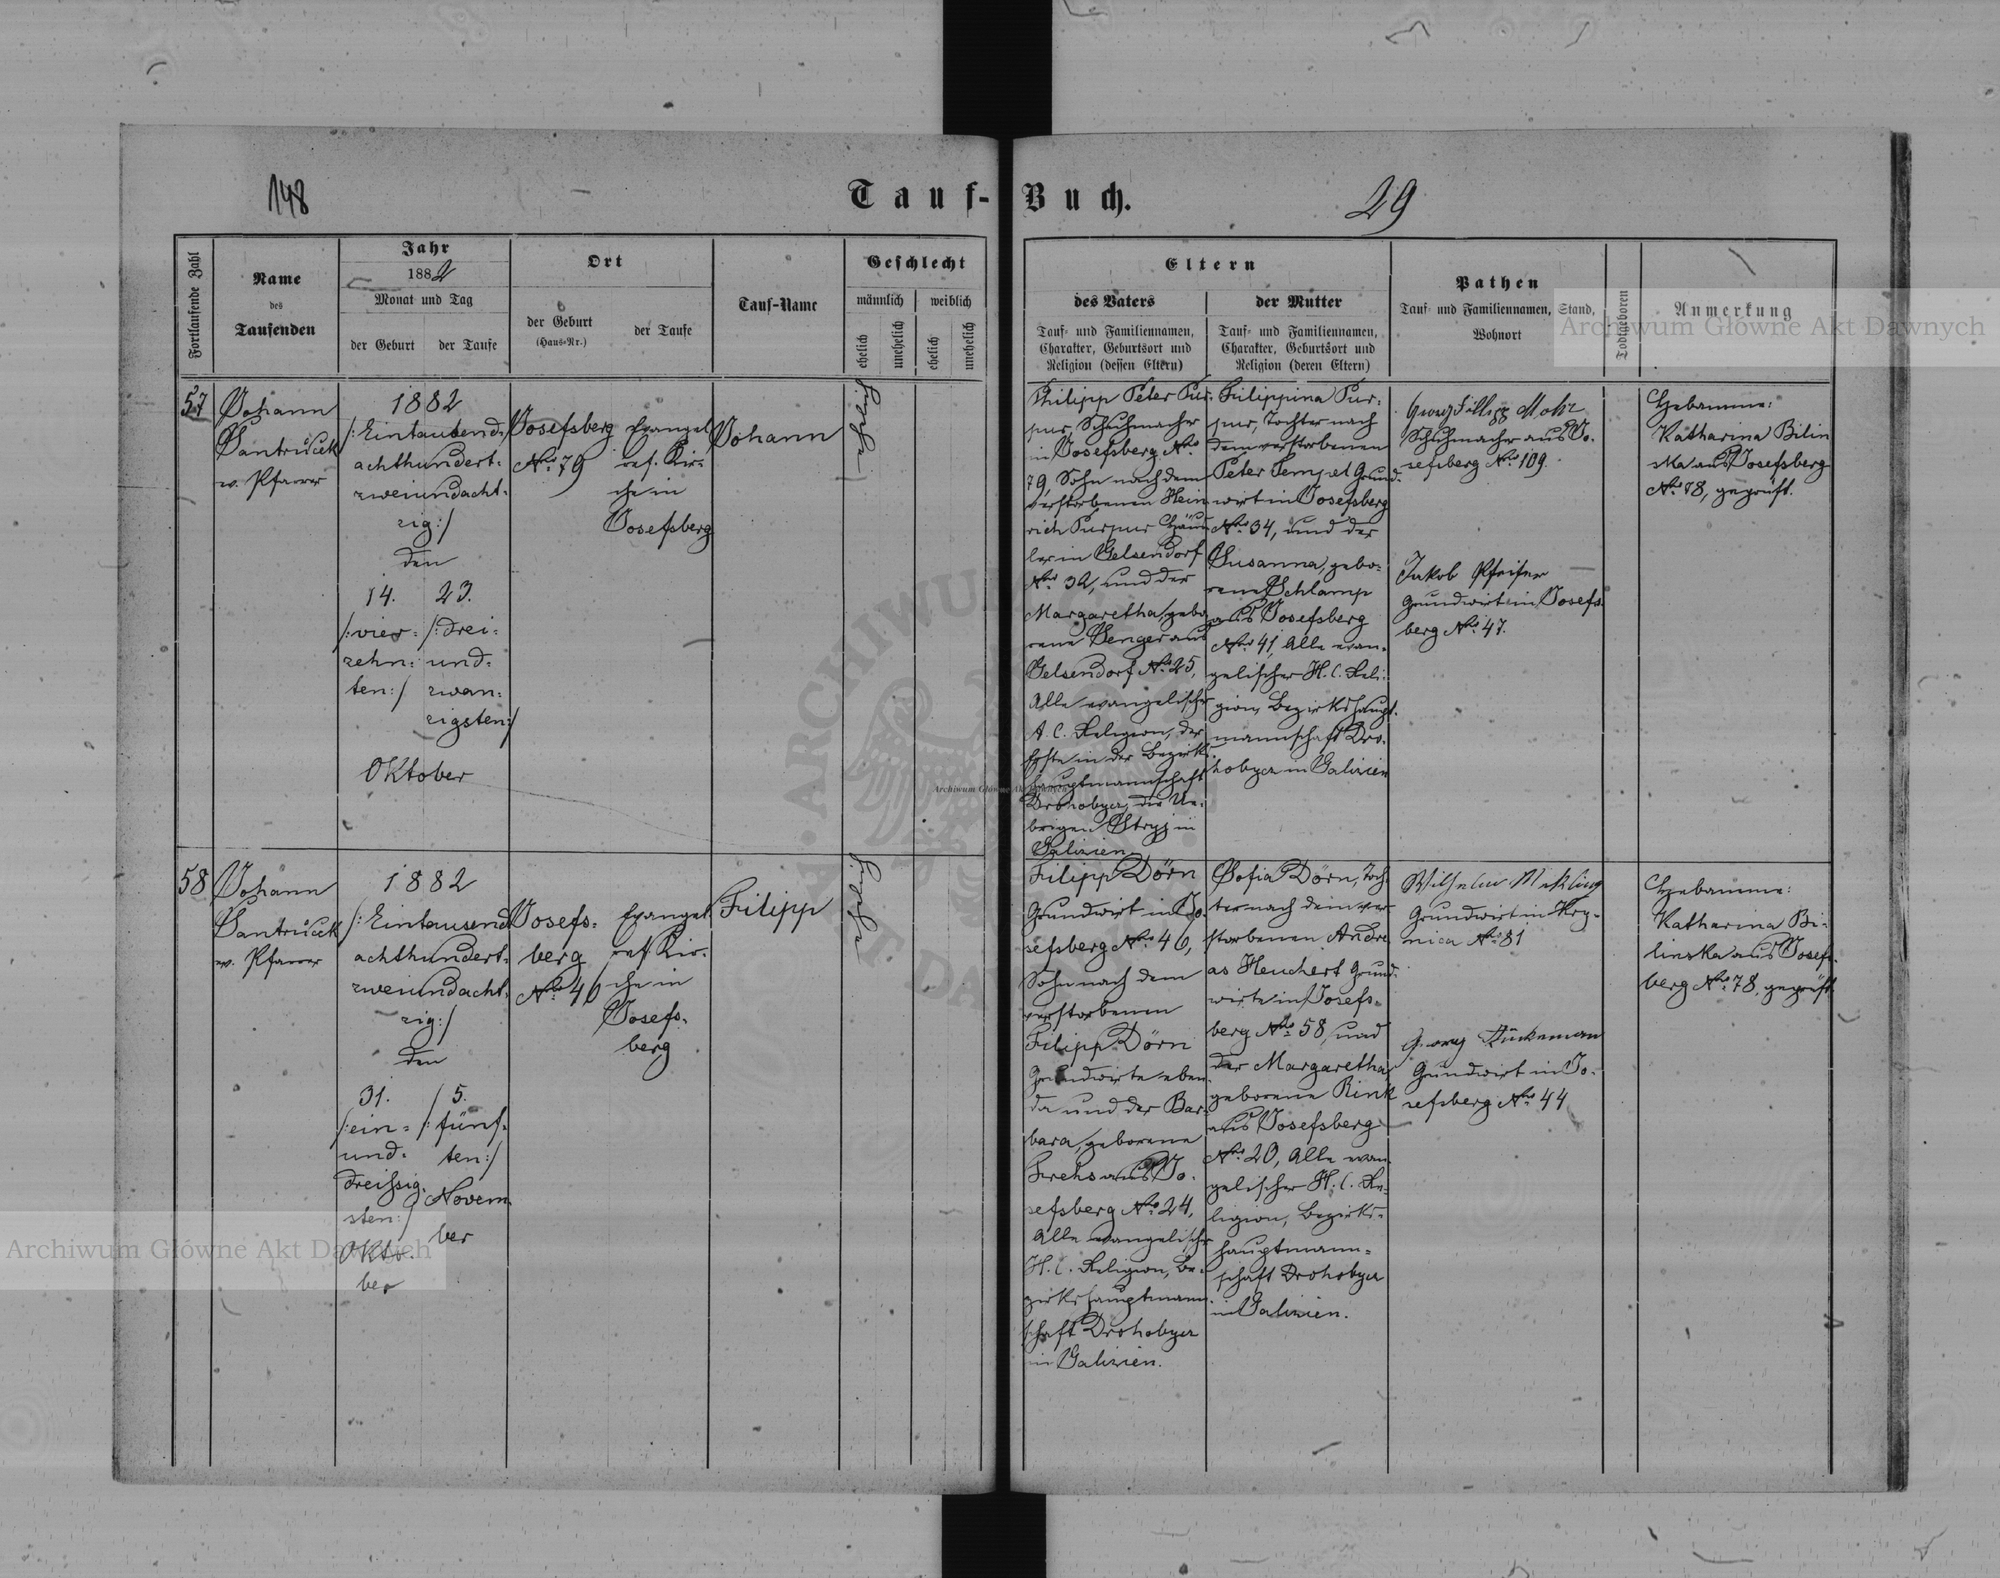 148
Tauf-Buch.
29
Fortlaufende Zahl
Name
des
Taufenden
Jahr
1882
Monat und Tag
der Geburt
der Taufe
Ort
der Geburt
(Haus-Nr.)
der Taufe
Tauf-Name
Geschlecht
männlich
weiblich
ehelich
unehelich
ehelich
unehelich
Eltern
des Vaters
Tauf- und Familiennamen,
Charakter, Geburtsort und
Religion (dessen Eltern)
der Mutter
Tauf- und Familiennamen,
Charakter, Geburtsort und
Religion (deren Eltern)
Pathen
Tauf- und Familiennamen, Stand,
Wohnort
Todtgeboren
Anmerkung
57
Johann
Santrůček
ev. Pfarrer
1882
/:Eintausend
achthundert-
zweiundacht-
zig:/
den
14.
/:vier-
zehn-
ten:/
23.
/:drei-
und-
zwan-
zigsten:/
Oktober
Josefsberg
Nro 79
Evangel.
ref. Kir-
che in
Josefsberg
Johann
Philipp Peter Pur-
pur, Schuhmacher
in Josefsberg Nro
79, Sohn nach dem
verstorbenen Hein-
rich Purpur Häus-
ler in Gelsendorf
Nro 32, und der
Margaretha, gebo-
rene Senger aus
Gelsendorf Nro 25,
Alle evangelischer
A. C. Religion, der
Erste in der Bezirks-
hauptmannschaft
Drohobycz, die Ue-
brigen Stryj in
Galizien.
Filippina Pur-
pur, Tochter nach
dem verstorbenen
Peter Tempel Grund-
wirt in Josefsberg
Nro 34, und der
Susanna, gebo-
rene Schlamp
aus Josefsberg
Nro 41, Alle evan-
gelischer H. C. Reli-
gion, Bezirkshaupt-
mannschaft Dro-
hobycz in Galizien
Georg Fillipp Mohr
Schuhmacher aus Jo-
sefsberg Nro 109.
Jakob Pfeifer
Grundwirt in Josefs-
berg Nro 47.
Hebamme:
Katharina Bilin
ska aus Josefsberg
Nro 78, geprüft.
58
Johann
Santrůček
ev. Pfarrer
1882
/:Eintausend
achthundert-
zweiundacht-
zig:/
den
31.
/:ein-
und-
dreissig-
sten:/
Okto-
ber
5.
/:fünf-
ten:/
Novem-
ber
Josefs-
berg
Nro 46
Evangel.
ref. Kir-
che in
Josefs-
berg
Filipp
Filipp Dörn
Grundwirt in Jo-
sefsberg Nro 46,
Sohn nach dem
verstorbenen
Filipp Dörn
Grundwirte eben-
da und der Bar-
bara, geborene
Frehs aus Jo-
sefsberg Nro 24,
Alle evangelischer
H. C. Religion, Be-
zirkshauptmann-
schaft Drohobycz
in Galizien.
Sofia Dörn, Toch-
ter nach dem ver
storbenen Andre-
as Heuchert Grund-
wirte in Josefs-
berg Nro 58, und
der Margaretha,
geborene Rink
aus Josefsberg
Nro 20, Alle evan-
gelischer H. C. Re-
ligion, Bezirks-
hauptmann-
schaft Drohobycz
in Galizien.
Wilhelm Mekling
Grundwirt in Kry-
nica Nro 81
Georg
Grundwirt in Jo-
sefsberg Nro 44
Hebamme:
Katharina Bi-
linska aus Josefs-
berg Nro 78, geprüft.
Archiwum Główne Akt Dawnych
Archiwum Główne Akt Dawnych
Archiwum Główne Akt Dawnych